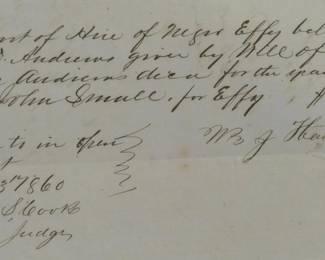 of Hire of Negro Effy
Andrews given by Will of
Andrews decd for the
John Small, for Effy
to in open
1860
S. Cook
Judge
Wm J